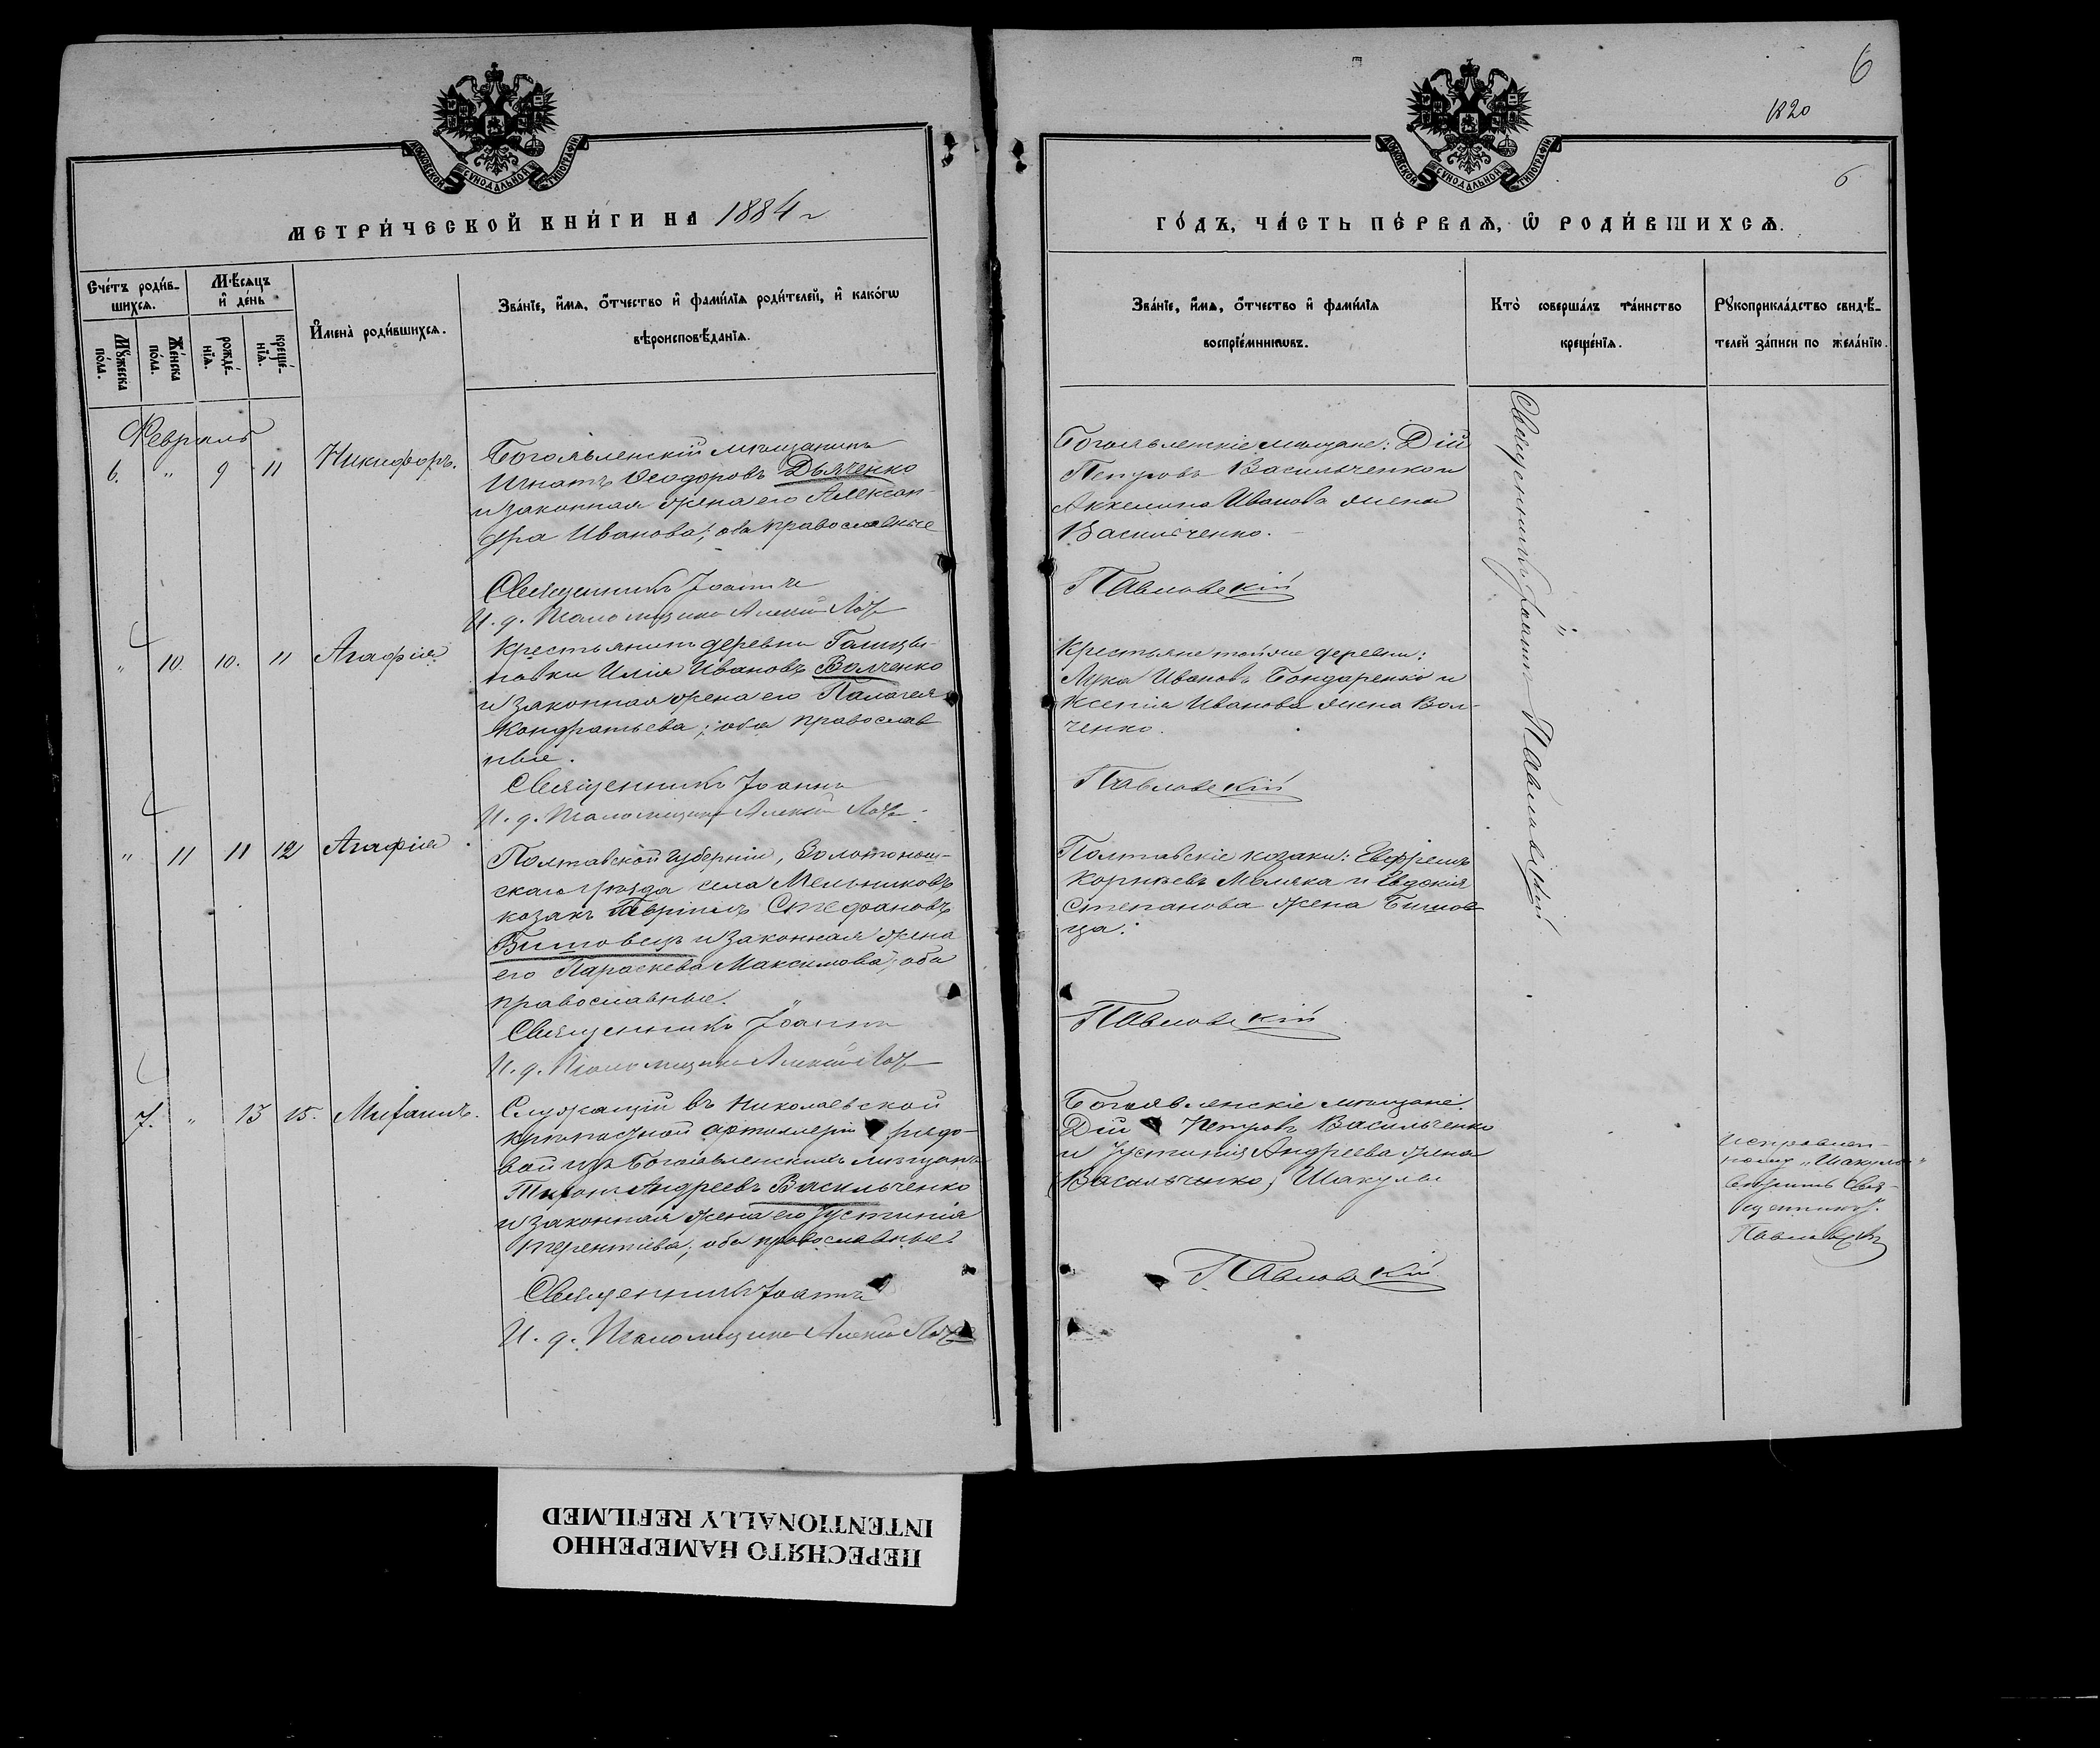 6
1820
6
МОСКОВСКОЙ СѴНОДАЛЬНОЙ ТИПОГРАФІИ
МЕТРИ́ЧЕСКОЙ КНИ́ГИ НА 1884 г
Сче́тъ роди́в-
шихсѧ.
Мѣ́сѧцъ
и҆ де́нь
Мꙋ́жеска
по́ла.
Же́нска
по́ла.
рожде́-
нїѧ.
креще́-
нїѧ.
И҆мена̀ роди́вшихсѧ.
Зва́нїе, и҆́мѧ, ѻ҆́тчество и҆ фами́лїѧ роди́телей, и҆ како́гѡ
вѣроисповѣ́данїѧ.
Февраль
6. " 9 11 Никифоръ.
Богоявленскій мѣщанинъ
Игнатъ Ѳеодоровъ Дьяченко
и законная жена его Алексан-
дра Иванова; оба православные
Священникъ Іоаннъ
И. д. Псаломщика Алексій
" 10. 10. 11 Агафія
Крестьянинъ деревни Галицы-
новки Илія Ивановъ Волченко
и законная жена его Палагея
Кондратьева; оба православ
ные.
Священникъ Іоаннъ
И. д. Псаломщика Алексій
" 11 11 12 Агафія
Полтавской губерніи, Золотонош-
скаго уѣзда села Мельниковъ
козакъ Гавріилъ Стефановъ
Битовецъ и законная жена
его Параскева Максимова; оба
православные.
Священникъ Іоаннъ
И. д. Псаломщика Алексій
7. " 13 15.
Служащій въ Николаевской
крѣпостной артиллеріи рядо-
вой изъ Богоявленскихъ мѣщанъ
Андреевъ Васильченко
и законная жена его Іустинія
Терентіева; оба православные
Священникъ Іоаннъ
И. д. Псаломщика Алексій
МОСКОВСКОЙ СѴНОДАЛЬНОЙ ТИПОГРАФІИ
ГО́ДЪ, ЧА́СТЬ ПЕ́РВАѦ, Ѡ҆ РОДИ́ВШИХСѦ.
Зва́нїе, и҆́мѧ, ѻ҆́тчество и҆ фами́лїѧ
воспрїе́мникѡвъ.
Кто̀ соверша́лъ та́инство
креще́нїѧ.
Рꙋкоприкла́дство свидѣ́-
телей за́писи по жела́нїю.
Богоявленскіе мѣщане: Дій
Петровъ Васильченко и
Акилина Иванова жена
Васильченко.
Павловскій
Крестьяне тойже деревни:
Лука Ивановъ Бондаренко и
Ксенія Иванова жена Вол-
ченко.
Павловскій
Полтавскіе козаки: Евфремъ
Корніевъ Меляка и Евдокія
Степанова жена Битов
ца.
Павловскій
Богоявленскіе мѣщане:
Дій Петровъ Васильченко
и Іустинія Андреева жена
Васильченко, Шакулы
Павловскій
Священникъ Іоаннъ Павловскій
Исправлен-
ному „Шакулы"
Свя-
щенникъ
Павловскій
ПЕРЕСНЯТО НАМЕРЕННО
INTENTIONALLY REFILMED